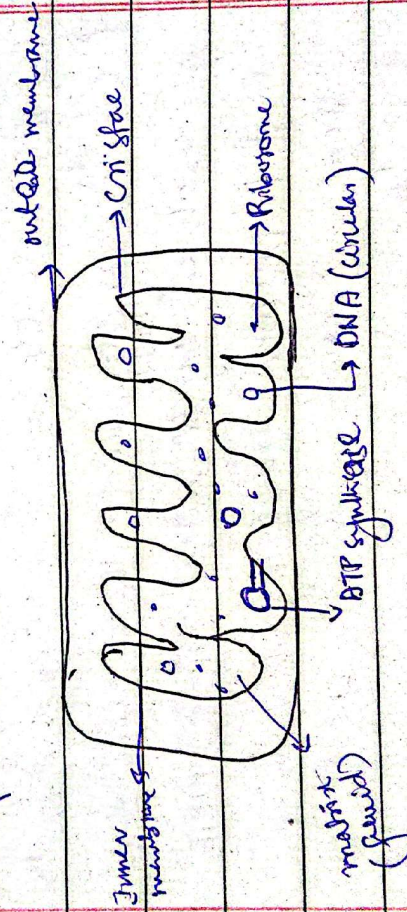 outside membrane
Cristae
Ribosome
DNA (circular)
ATP synthase
Inner
membrane
matrix
(fluid)